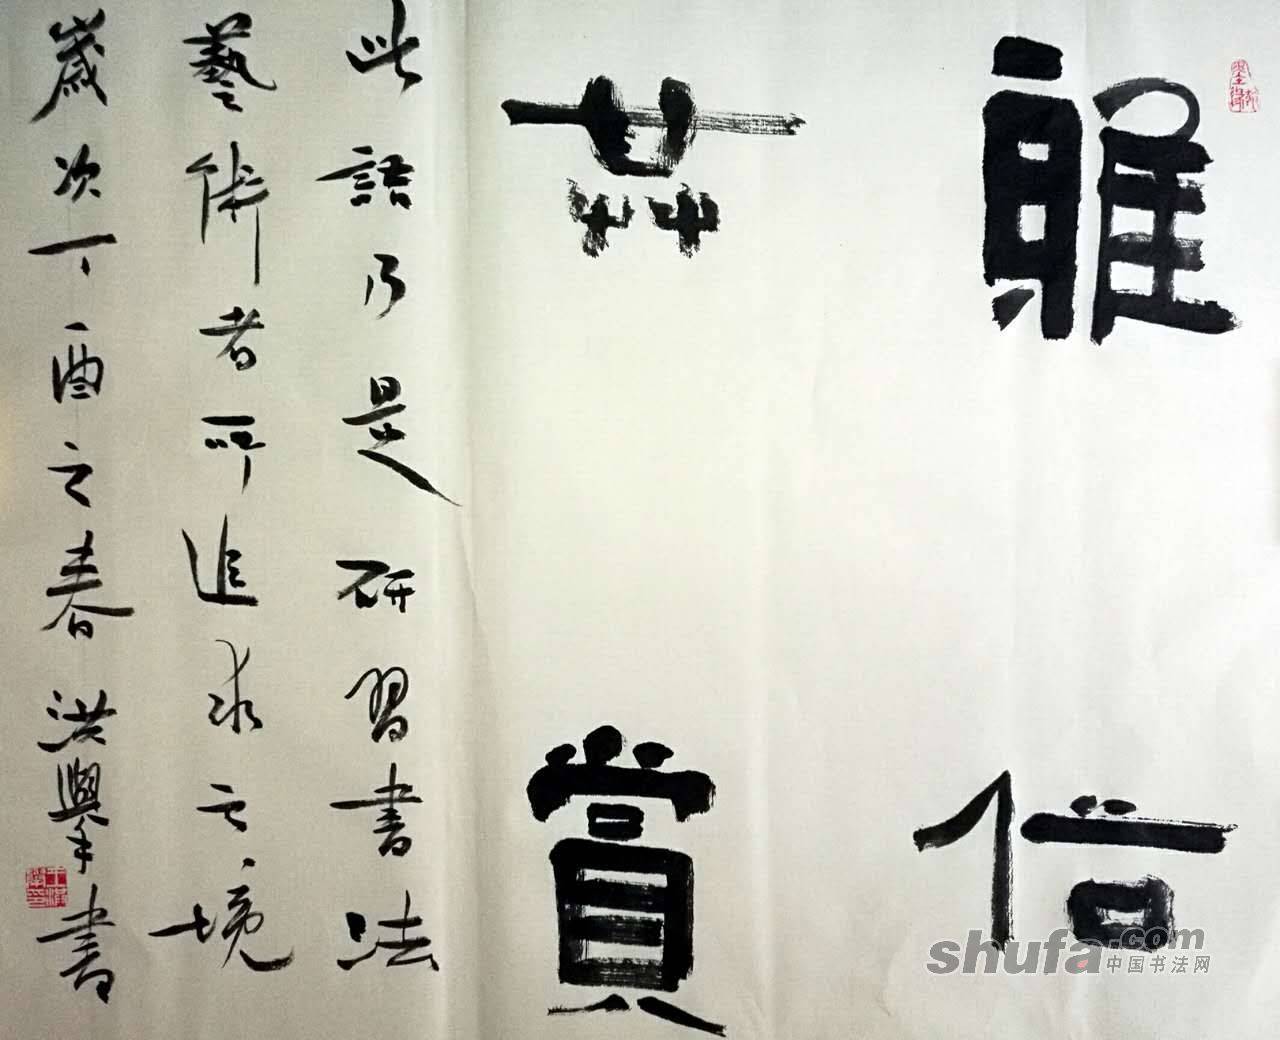 雅俗
共賞
此語乃是研習書法
藝術者所追求之境
歲次丁酉之春 洪舉書
shufa.com
中国书法网